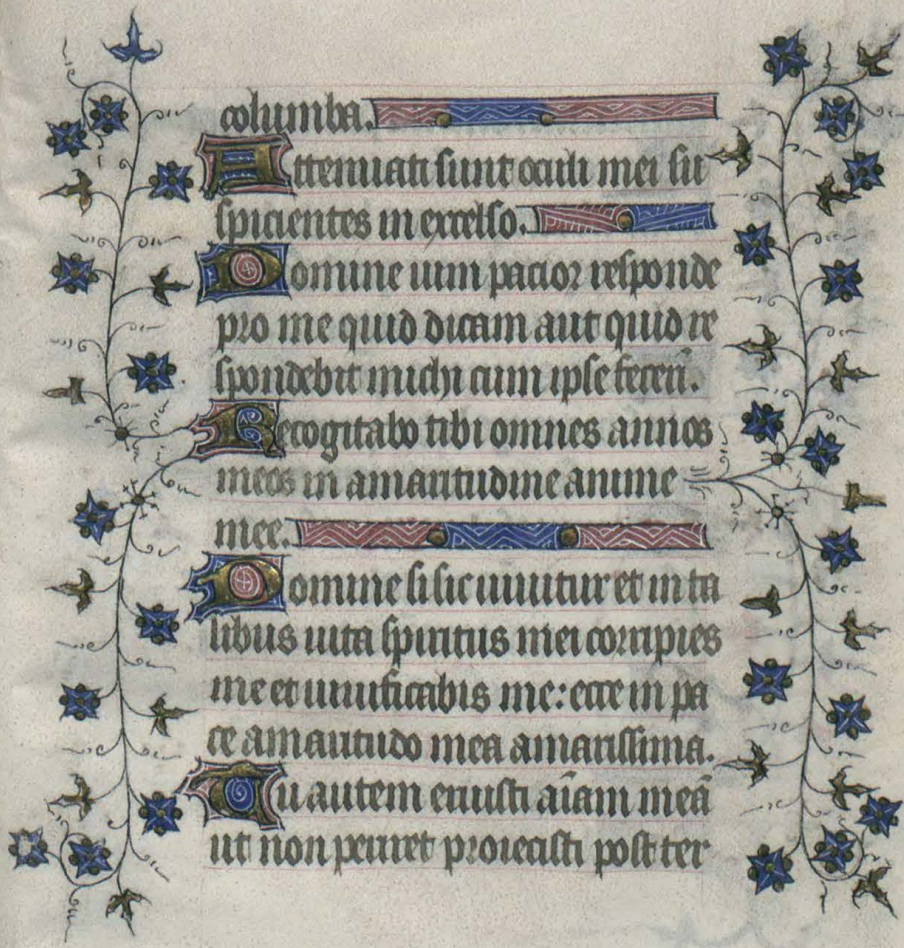 columba.
Attenuati sunt oculi mei su
spicientes in excelso.
Domine uim pacior responde
pro me quid dicam aut quid re
spondebit michi cum ipse fecerī.
Recogitabo tibi omnes annos
meos in amaritudine anime
mee.
Domine si sic uiuitur et in ta
libus uita spiritus mei corripies
me et uiuificabis me: ecce in pa
ce amaritudo mea amarissima.
Tu autem eruisti aīam meā
ut non periret proiecisti post ter